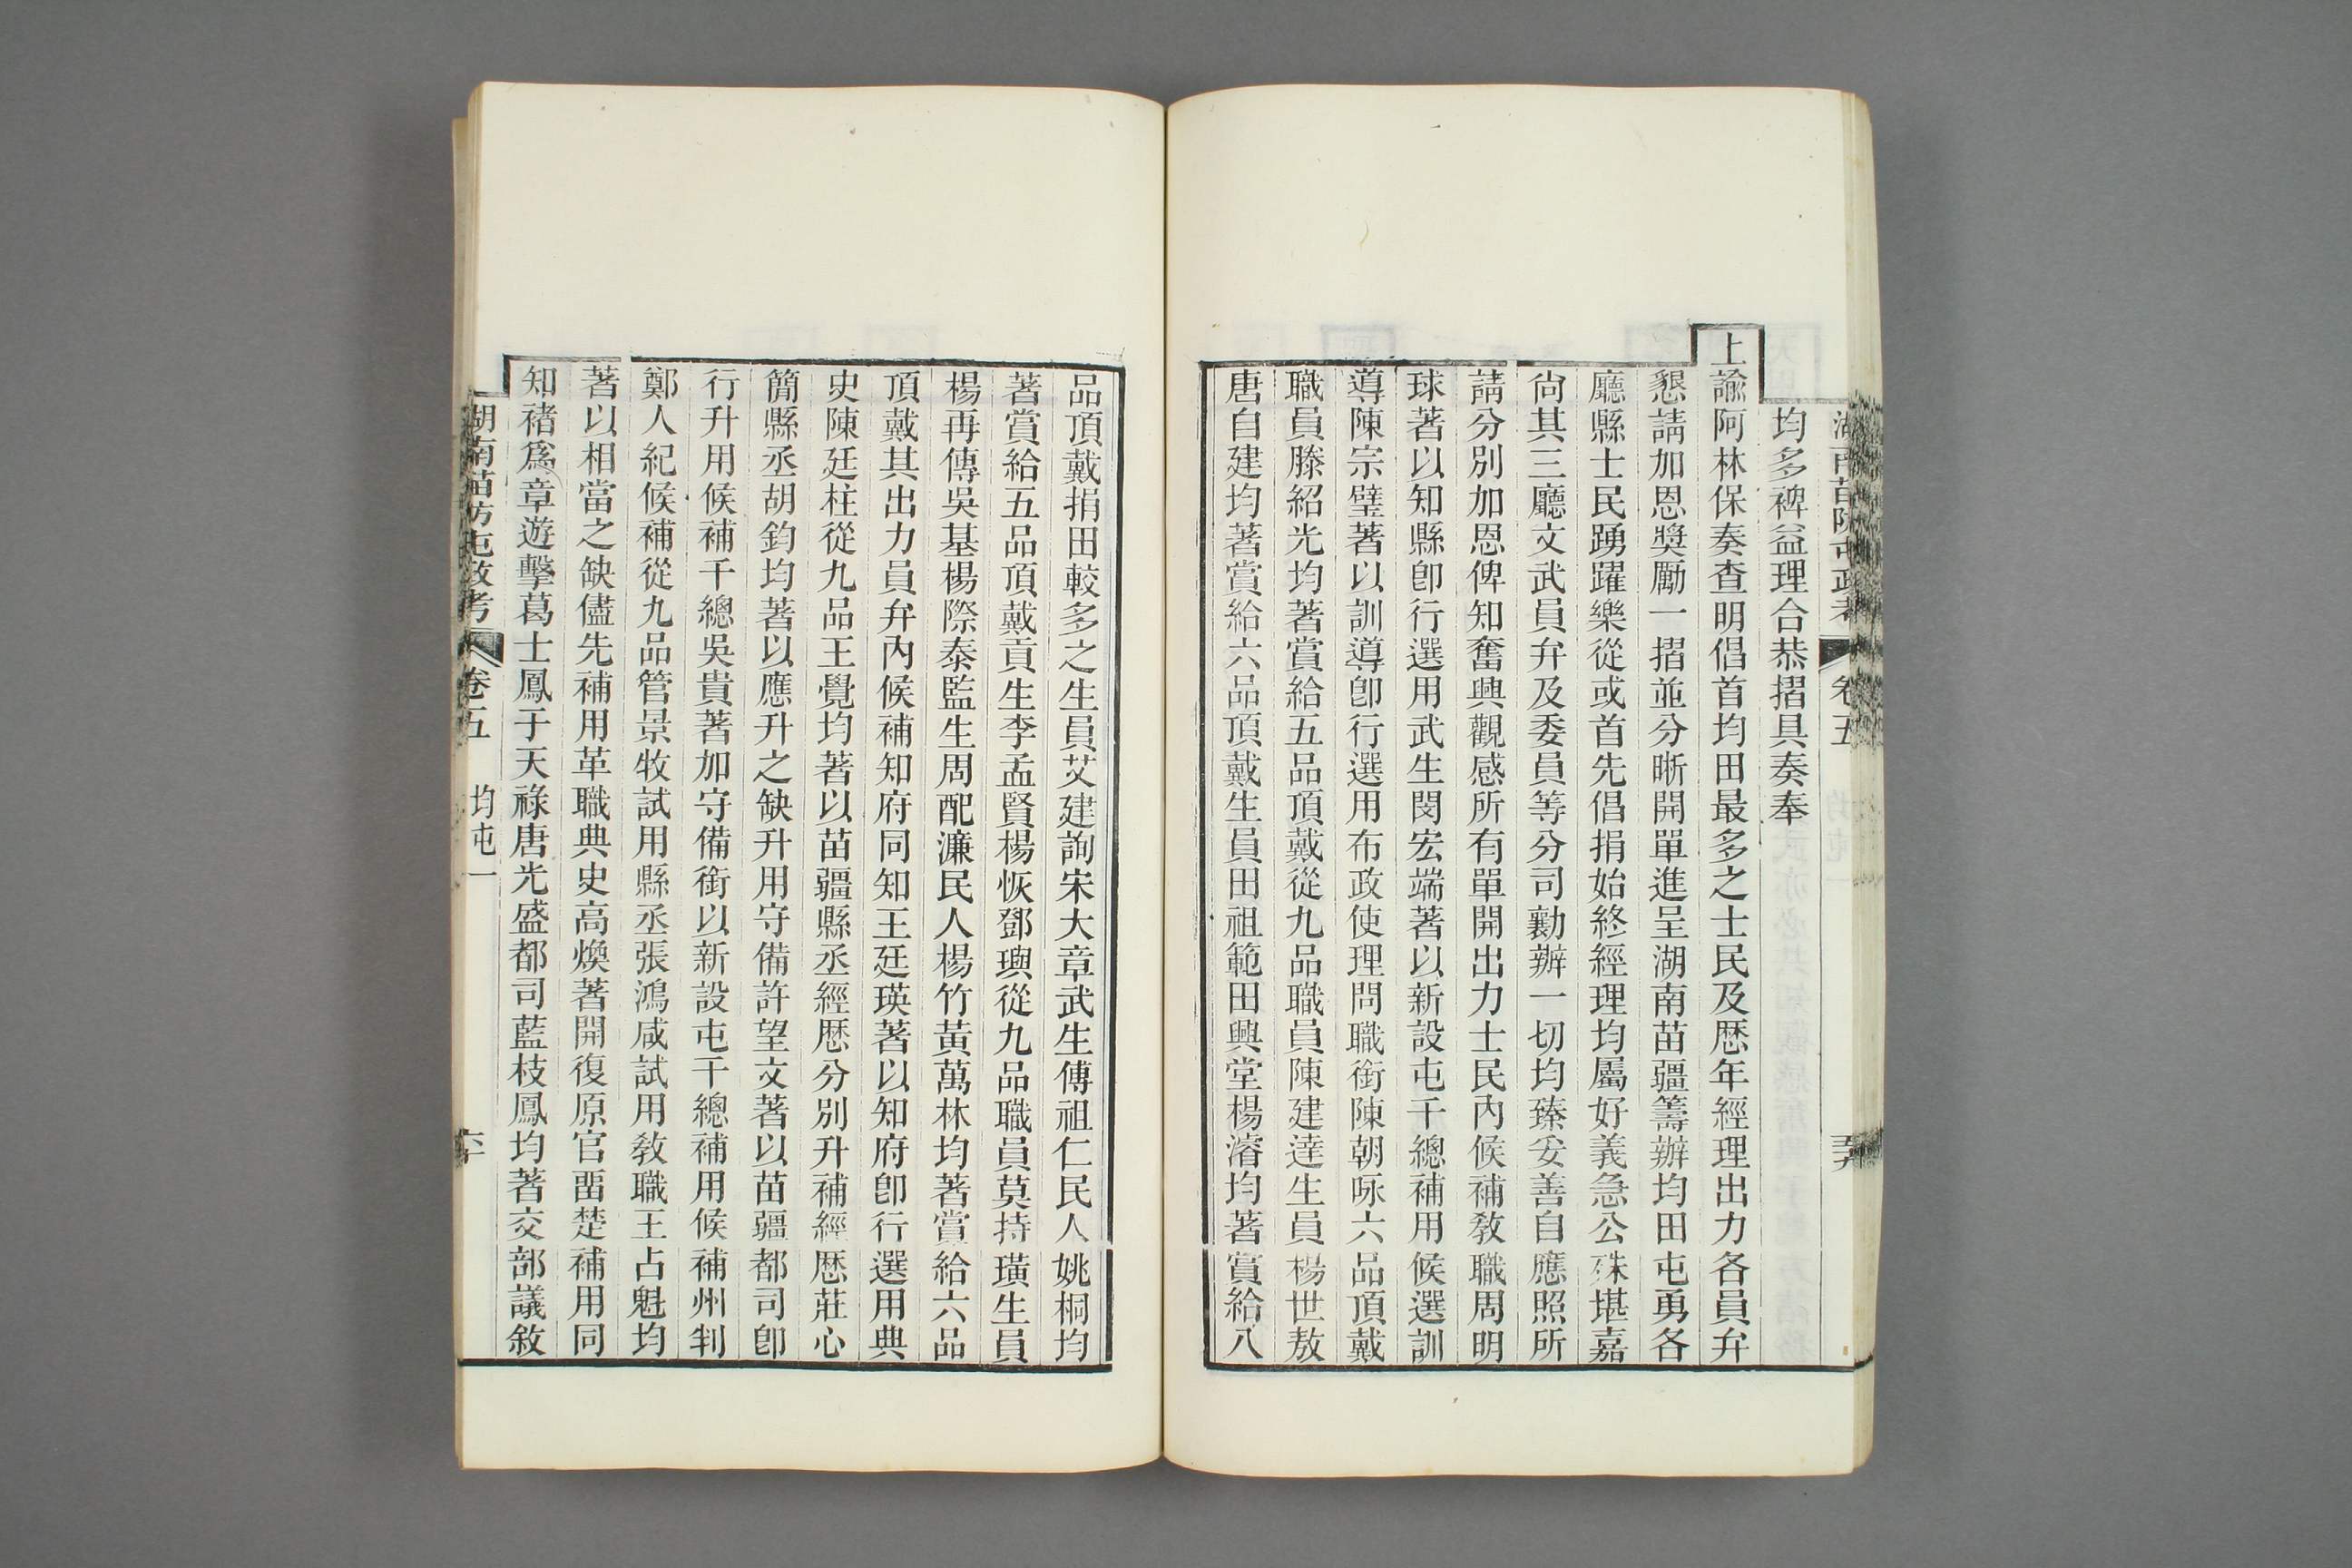 湖南苗防屯政考 卷五
均多裨益理合恭摺具奏奉
上諭阿林保奏查明倡首均田最多之士民及歷年經理出力各員弁
懇請加恩獎勵一摺並分晰開單進呈湖南苗疆籌辦均田屯勇各
廳縣士民踴躍樂從或首先倡捐始終經理均屬好義急公殊堪嘉
尙其三廳文武員弁及委員等分司勷辦一切均臻妥善自應照所
請分別加恩俾知奮興觀感所有單開出力士民內候補敎職周明
球著以知縣卽行選用武生閔宏端著以新設屯千總補用候選訓
導陳宗璧著以訓導卽行選用布政使理問職銜陳朝咏六品頂戴
職員滕紹光均著賞給五品頂戴從九品職員陳建逹生員楊世敖
唐自建均著賞給六品頂戴生員田祖範田興堂楊濬均著賞給八
品頂戴捐田較多之生員艾建詢宋大章武生傅祖仁民人姚桐均
著賞給五品頂戴貢生李孟賢楊恢鄧璵從九品職員莫持璜生員
楊再傳吳基楊際泰監生周配濂民人楊竹黃萬林均著賞給六品
頂戴其出力員弁內候補知府同知王廷瑛著以知府卽行選用典
史陳廷柱從九品王覺均著以苗疆縣丞經歷分別升補經歷莊心
簡縣丞胡鈞均著以應升之缺升用守備許望文著以苗疆都司卽
行升用候補千總吳貴著加守備銜以新設屯千總補用候補州判
鄭人紀候補從九品管景牧試用縣丞張鴻咸試用敎職王占魁均
著以相當之缺儘先補用革職典史高煥著開復原官畱楚補用同
知褚爲章遊擊葛士鳳于天祿唐光盛都司藍枝鳳均著交部議敘
湖南苗防屯政考 卷五 均屯一